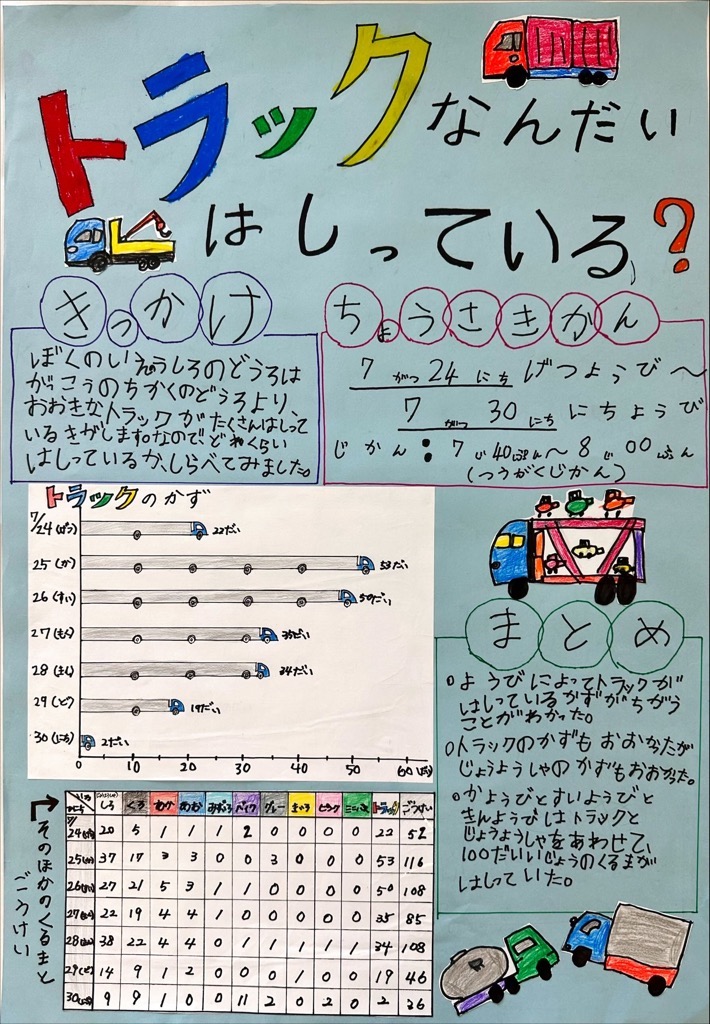 トラックなんだい
はしっている?
きっかけ
ぼくのいえのうしろのどうろは
がっこうのちかくのどうろより、
おおきなトラックがたくさんはしって
いるきがします。なので、どれくらい
はしっているか、しらべてみました。
ちょうさきかん
7がつ24にちげつようび～
7がつ30にちにちょうび
じかん:7じ40ぷん～8じ00ぷん
(つうがくじかん)
トラックのかず
7/24(げつ) 22だい
25(か) 53だい
26(すい) 50だい
27(もく) 35だい
28(きん) 34だい
29(ど) 19だい
30(にち) 2だい
0 10 20 30 40 50 60(だい)
まとめ
○ようびによってトラックが
はしっているかずがちがう
ことがわかった。
○トラックのかずもおおかったが
じょうようしゃのかずもおおかった。
○かようびとすいようびと
きんようびはトラックと
じょうようしゃをあわせて、
100だいいじょうのくるまが
はしっていた。
そのほかのくるまと
ごうけい
しろ くろ あか あお みずいろ バイク グレー きいろ ピンク トラック ごうけい
7/24(げつ) 20 5 1 1 1 2 0 0 0 0 22 52
25(か) 37 17 3 3 0 0 3 0 0 0 53 116
26(すい) 27 21 5 3 1 1 0 0 0 0 50 108
27(もく) 22 19 4 4 1 0 0 0 0 0 35 85
28(きん) 38 22 4 4 0 1 1 1 1 1 34 108
29(ど) 14 9 1 2 0 0 0 1 0 0 19 46
30(にち) 9 9 1 0 0 11 2 0 2 0 2 36